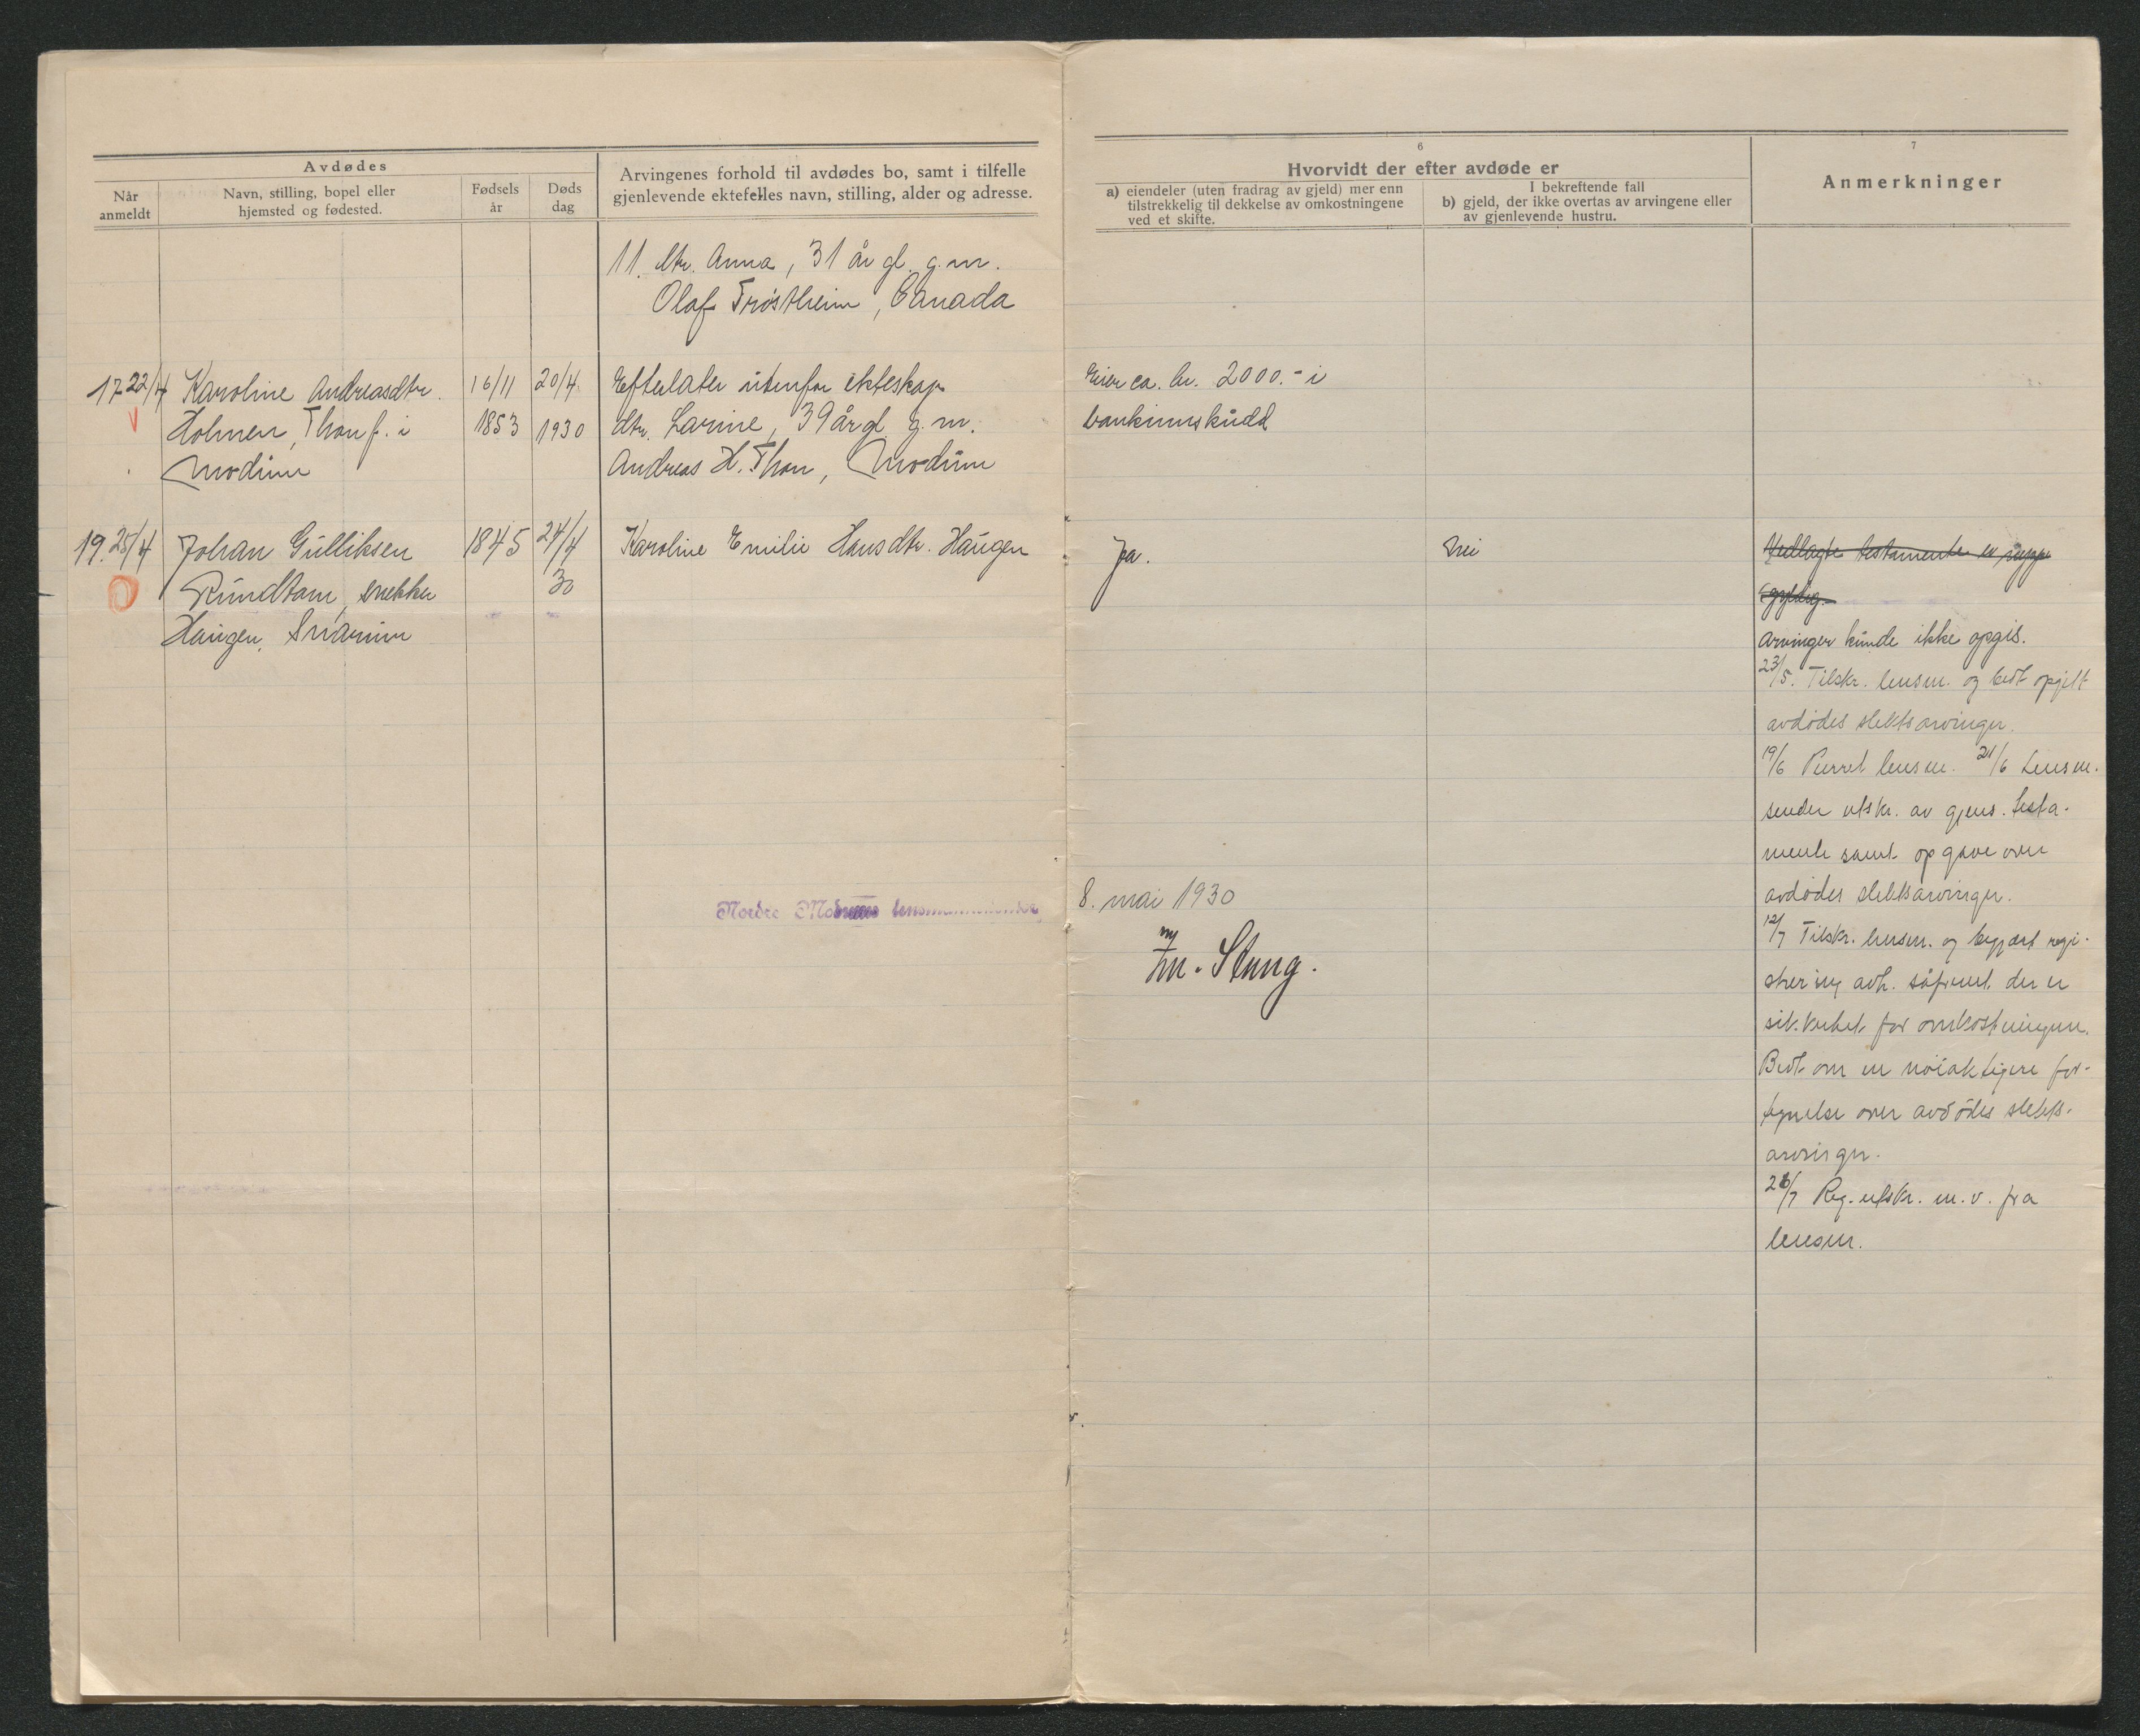 Avdødes
Når anmeldt
Navn, stilling, bopel eller hjemsted og fødested.
Fødsels år
Døds dag
Arvingenes forhold til avdødes bo, samt i tilfelle
gjenlevende ektefelles navn, stilling, alder og adresse.
6
Hvorvidt der efter avdøde er
a) eiendeler (uten fradrag av gjeld) mer enn
tilstrekkelig til dekkelse av omkostningene
ved et skifte.
I bekreftende fall
b) gjeld, der ikke overtas av arvingene eller
av gjenlevende hustru.
7
Anmerkninger
11. dtr. Anna, 31 år gl. g.m.
Olaf Frøstheim, Canada
17 22/4 Karoline Andreasdtr.
Holmen, Thon f. i
Modum
16/11
1853
20/4
1930
Efterlater utenfor ekteskap
dtr. Larine, 39 år gl. g.m.
Andreas H. Thon, Modum
Eier ca. kr. 2000.- i
bankinnskudd
19. 25/4 Johan Gulliksen
Rundtom, snekker
Haugen, Snarum
1845
24/4
30
Karoline Emilie Hansdtr. Haugen
Ja.
Nei
Vedlagte testamente er
Arvinger kunde ikke opgis.
23/5. Tilskr. lensm. og bedt opgitt
avdødes slektsarvinger.
19/6 Purret lensm. 21/6 Lensm.
sender utskr. av gjens. testa-
mente samt opgave over
avdødes slektsarvinger.
12/7 Tilskr. lensm. og begjært regi-
strering avh. såfremt der er
sikkerhet for omkostningene.
Bedt om en nøiaktigere for-
tegnelse over avdødes slekts-
arvinger.
26/7 Reg. utskr. m. v. fra
lensm.
Nordre Modums lensmannskontor,
8. mai 1930
M. Stung.